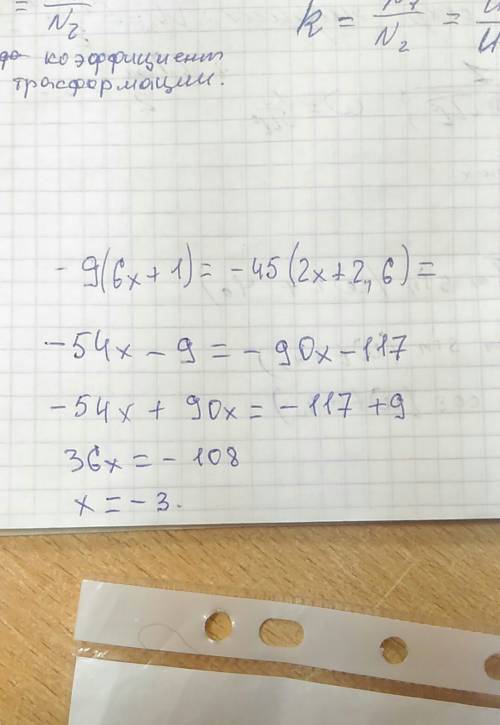 = / N₂.
k = N₁ / N₂ =
коэффициент
трасформации.
- 9(6x+1) = -45(2x+2,6) =
-54x - 9 = -90x-117
-54x + 90x = -117 +9
36x = - 108
x = - 3.